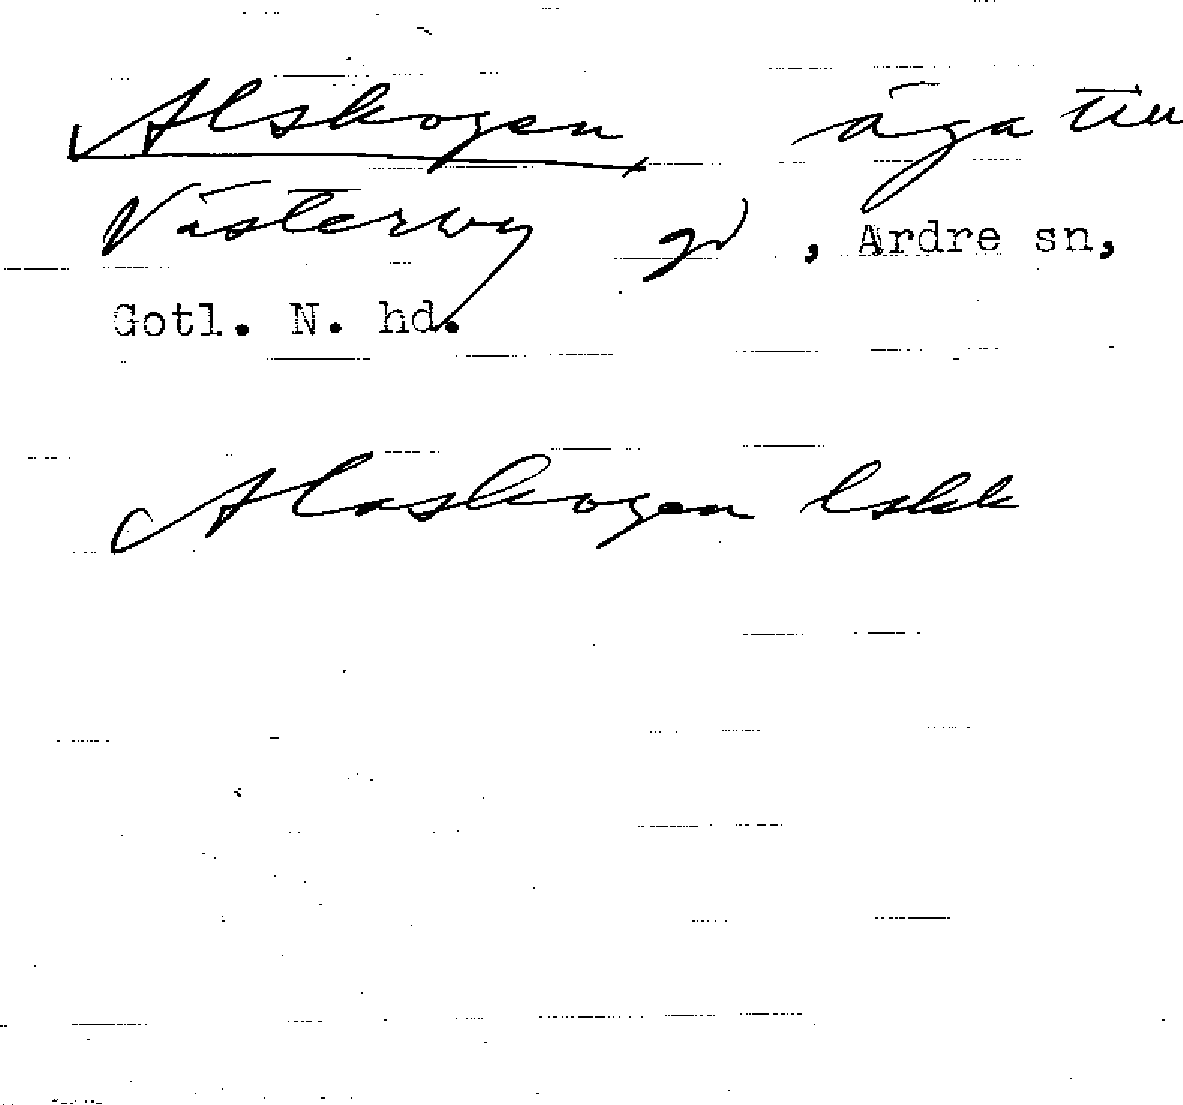 Alskogen, äga till
Västerby gd, Ardre sn,
Gotl. N. hd.
Alaskogen lskk